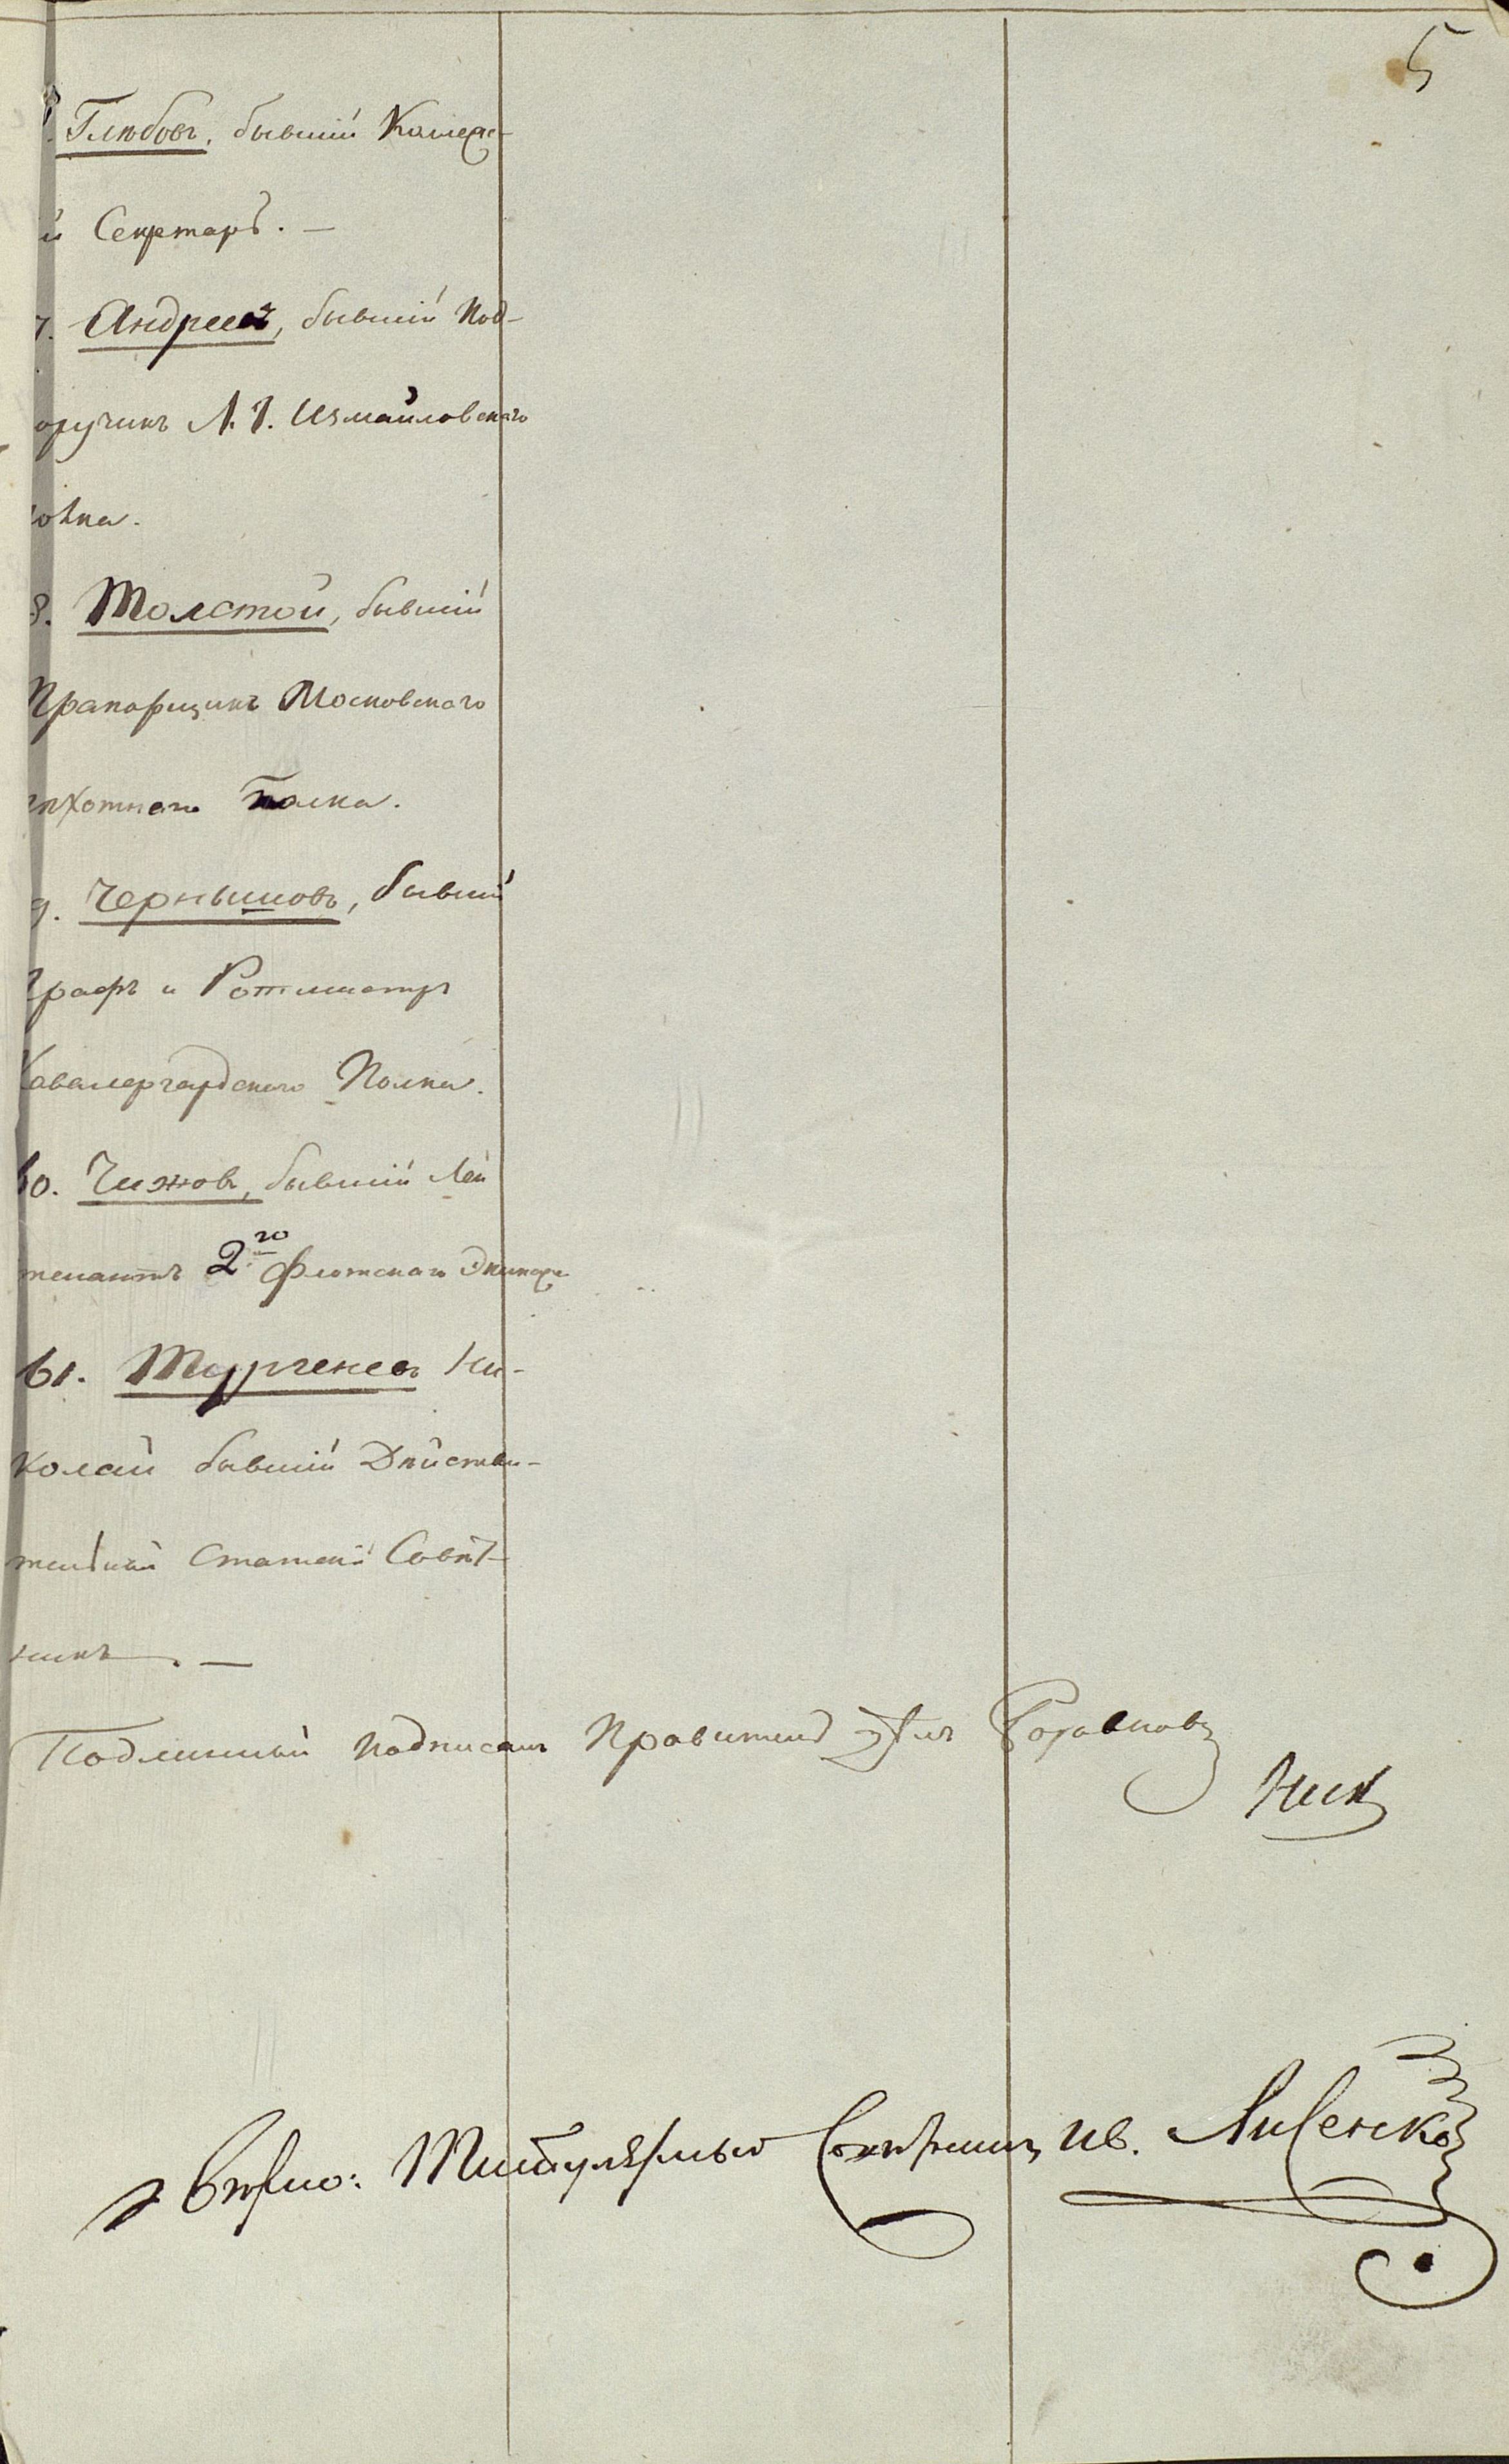 5
Глѣбовъ, бывшій Коллеж-
й Секретарь. —
7. Андреевъ, бывшій Под-
оручикъ Л. Г. Измайловскаго
олка.
8. Толстой, бывшій
Прапорщикъ Московскаго
пѣхотнаго Полка.
9. Чернышовъ, бывшій
Графъ и Ротмистръ
Кавалергардскаго Полка.
60. Чижовъ, бывшій Лей
тенантъ 2го Флотскаго Экипажа
61. Тургеневъ Ни-
колай бывшій Дѣйстви-
тельный Статскій Совѣт-
никъ. —
Подлинный подписалъ Правитель Дѣлъ Боровковъ
Вѣрно: Титулярный Совѣтникъ Ив. Лисенко